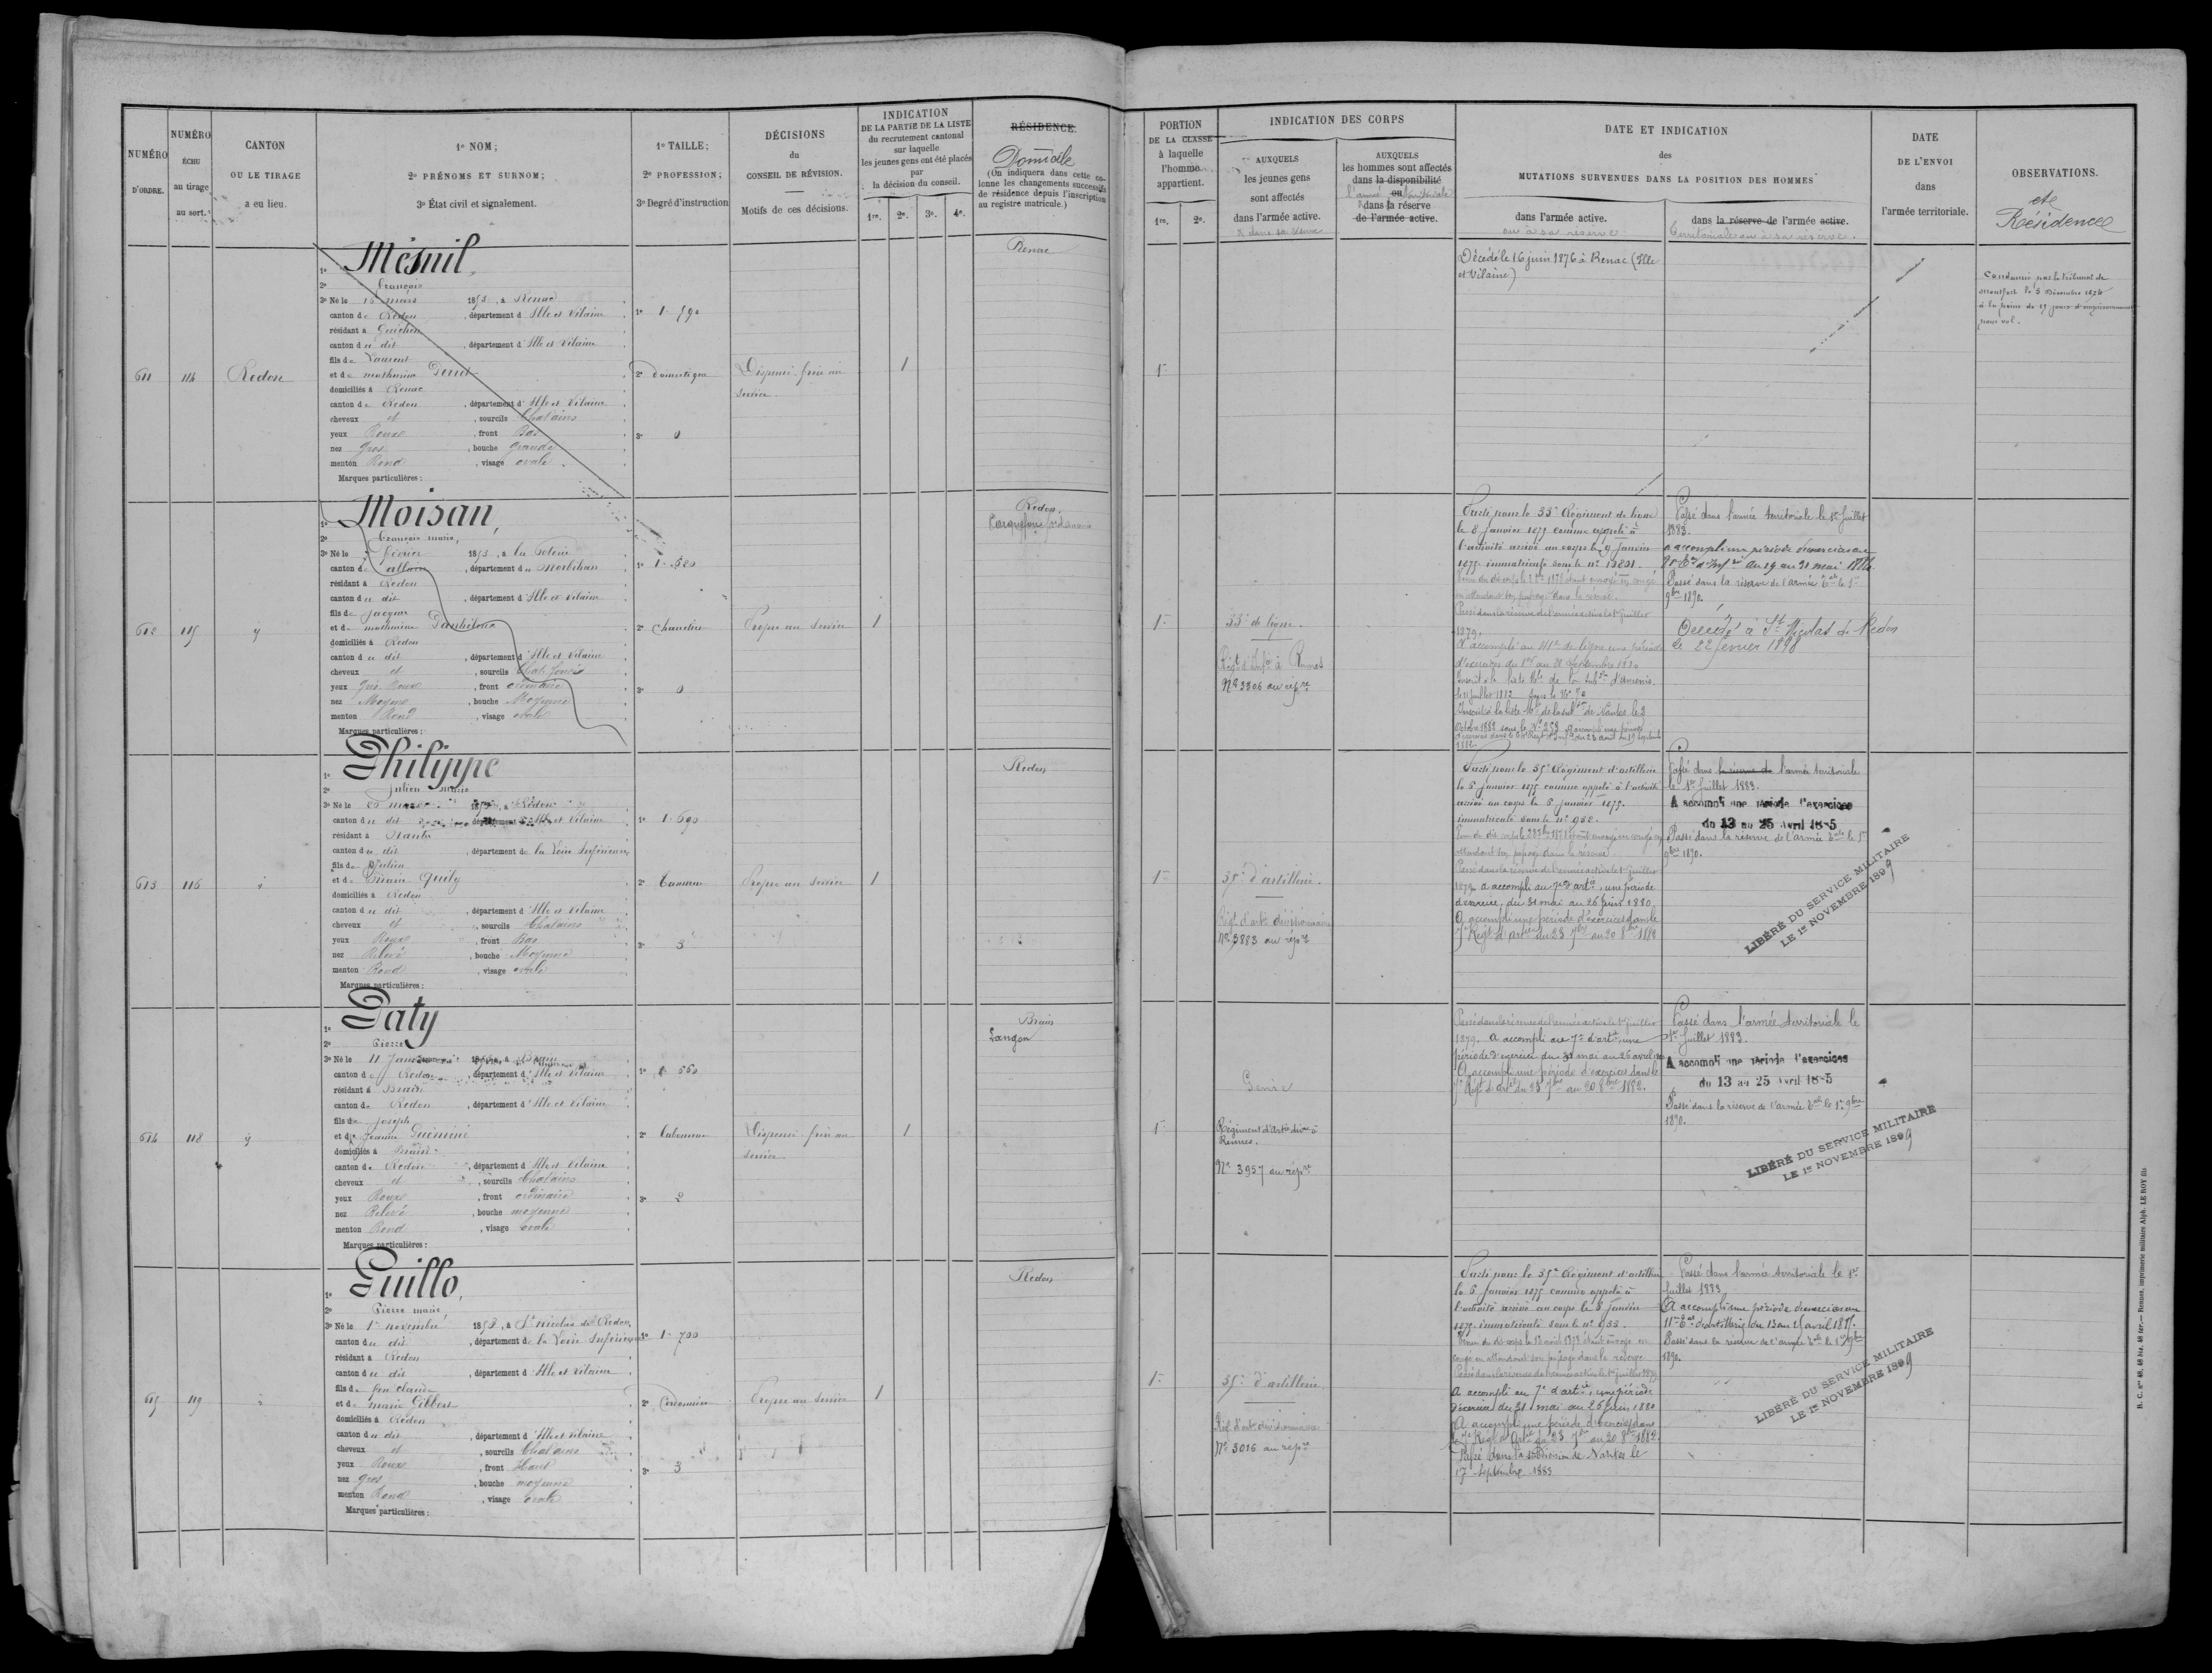 NUMÉRO
D'ORDRE.
NUMÉRO
ÉCHU
au tirage
au sort.
CANTON
OU LE TIRAGE
a eu lieu.
1º NOM;
2º PRÉNOMS ET SURNOM;
3º État civil et signalement.
1º TAILLE;
2º PROFESSION;
3º Degré d'instruction
DÉCISIONS
du
CONSEIL DE RÉVISION.
Motifs de ces décisions.
INDICATION
DE LA PARTIE DE LA LISTE
du recrutement cantonal
sur laquelle
les jeunes gens ont été placés
par
la décision du conseil.
1re. 2e. 3e. 4e.
RÉSIDENCE
Domicile
(On indiquera dans cette co-
lonne les changements successifs
de résidence depuis l'inscription
au registre matricule.)
PORTION
DE LA CLASSE
à laquelle
l'homme
appartient.
1re. 2e.
INDICATION DES CORPS
AUXQUELS
les jeunes gens
sont affectés
dans l'armée active.
& dans sa réserve
AUXQUELS
les hommes sont affectés
dans la disponibilité
ou
l'armée territoriale
dans la réserve
de l'armée active.
DATE ET INDICATION
des
MUTATIONS SURVENUES DANS LA POSITION DES HOMMES
dans l'armée active.
ou à sa réserve
dans la réserve de l'armée active.
territoriale ou à sa réserve.
DATE
DE L'ENVOI
dans
l'armée territoriale.
OBSERVATIONS.
et
Résidence
611 114 Redon
1º Mesnil,
2º François
3º Né le 15 mars 1853, à Renac
canton de Redon, département d'Ille et Vilaine
résidant à Guichen
canton du dit, département d'Ille et Vilaine
fils de Laurent
et de mathurine
domiciliés à Renac
canton de Redon, département d'Ille et Vilaine
cheveux et, sourcils Chatains
yeux Roux, front Bas
nez Gros, bouche Grande
menton Rond, visage ovale
Marques particulières :
1º 1m 590
2º domestique
3º 0
Dispensé frère au
service.
1
Renac
1re
Décédé le 16 juin 1876 à Renac (Ille
et Vilaine)
Condamné par le tribunal de
Montfort le 5 Décembre 1874
à la peine de 15 jours d'emprisonnement
pour vol.
612 115 y
1º Moisan,
2º François marie,
3º Né le février 1853, à la
canton d'allaire, département du Morbihan
résidant à Redon
canton du dit, département d'Ille et Vilaine
fils de Jacques
et de mathurine
domiciliés à Redon
canton du dit, département d'Ille et Vilaine
cheveux et, sourcils Chat. foncés
yeux Gris Roux, front ordinaire
nez Moyen, bouche Moyenne
menton Rond, visage ovale
Marques particulières :
1º 1m 580
2º
3º 0
Propre au service
1
Redon,
Carquefou
1re
33e de ligne.
Régt d'Infie à Rennes
Nº 3306 au répre
Parti pour le 33e Régiment de ligne
le 8 Janvier 1875 comme appelé à
l'activité arrivé au corps le 9 Janvier
1875 immatriculé sous le nº 13801.
en attendant son passage dans la réserve.
Passé dans la réserve de l'armée active le 1er Juillet
1879.
A accompli au 41e de ligne une période
d'exercices du 1er au 28 Septembre 1880
Inscrit à la liste de la subdon d'Ancenis
le 11 juillet 1882 sous le Nº 70
Inscrit à la liste de la subon de Nantes le 3
Octobre 1882 sous le Nº 253
1882.
Passé dans l'armée territoriale le 1er Juillet
1883.
a accompli une période d'exercices au
du 19 au 31 mai 1886.
Passé dans la réserve de l'armée tale le 1er
9bre 1890.
Décédé à St Nicolas de Redon
le 22 février 1898
613 116
1º Philippe
2º Julien marie
3º Né le 26 mars 1853, à Redon
canton du dit, département d'Ille et Vilaine
résidant à Nantes
canton du dit, département de la Loire Inférieure
fils de Julien
et de marie Guily
domiciliés à Redon
canton du dit, département d'Ille et Vilaine
cheveux et, sourcils Chatains
yeux Roux, front Bas
nez Relevé, bouche Moyenne
menton Rond, visage ovale
Marques particulières :
1º 1m 690
2º Tanneur
3º 3
Propre au service
1
Redon
1re
35e d'artillerie.
Régt d'artie divisionnaire
Nº 3883 au répre
Parti pour le 35e Régiment d'artillerie
le 6 Janvier 1875 comme appelé à l'activité
arrivé au corps le 6 Janvier 1875.
immatriculé sous le nº 932.
attendant son passage dans la réserve.
Passé dans la réserve de l'armée active le 1er Juillet
1879 a accompli au 7e d'artie, une période
d'exercice, du 31 mai au 26 Juin 1880
A accompli une période d'exercices dans le
7e Régt d'artie du 23 7bre au 20 8bre 1882
Passé dans la réserve de l'armée territoriale
le 1er Juillet 1883.
A accompli une période d'exercices
du 13 au 25 Avril 1885
Passé dans la réserve de l'armée tale le 1er
9bre 1890.
LIBÉRÉ DU SERVICE MILITAIRE
LE 1er NOVEMBRE 1899
614 118 y
1º Paty
2º Pierre
3º Né le 11 Janvier 1853, à Brain
canton de Redon, département d'Ille et Vilaine
résidant à Brain
canton de Redon, département d'Ille et Vilaine
fils de Joseph
et de Jeanne Guémené
domiciliés à Brain
canton de Redon, département d'Ille et Vilaine
cheveux et, sourcils Chatains
yeux Roux, front ordinaire
nez Relevé, bouche moyenne
menton Rond, visage ovale
Marques particulières :
1º 1m 550
2º Laboureur
3º 2
Dispensé frère au
service.
1
Brain
Langon
1re
Régiment d'Artie divre à
Rennes.
Nº 3957 au répre
Passé dans la réserve de l'armée active le 1er Juillet
1879. a accompli au 7e d'artie, une
période d'exercice du 31 mai au 26 avril 1880
A accompli une période d'exercices dans le
7e Régt d'artie du 23 7bre au 20 8bre 1882.
Passé dans l'armée territoriale le
1er Juillet 1883.
A accompli une période d'exercices
du 13 au 25 Avril 1885
Passé dans la réserve de l'armée tale le 1er 9bre
1890.
LIBÉRÉ DU SERVICE MILITAIRE
LE 1er NOVEMBRE 1899
615 119
1º Guillo,
2º Pierre marie,
3º Né le 1er novembre 1853, à St nicolas de Redon,
canton du dit, département de la Loire Inférieure
résidant à Redon
canton du dit, département d'Ille et Vilaine
fils de feu claude
et de marie Gilbert
domiciliés à Redon
canton du dit, département d'Ille et Vilaine
cheveux et, sourcils Chatains
yeux Roux, front Haut
nez Gros, bouche moyenne
menton Rond, visage ovale
Marques particulières :
1º 1m 700
2º Cordonnier
3º 3
Propre au service
1
Redon
1re
35e d'artillerie
Régt d'artie divisionnaire
Nº 3016 au répre
Parti pour le 35e Régiment d'artillerie
le 6 Janvier 1875 comme appelé à
l'activité arrivé au corps le 6 Janvier
1875 immatriculé sous le nº 933.
congé en attendant son passage dans la réserve
Passé dans la réserve de l'armée active le 1er Juillet 1879
A accompli au 7e d'artie, une période
d'exercice du 31 mai au 26 Juin 1880
A accompli une période d'exercices dans
le 7e Régt d'Artie du 23 7bre au 20 8bre 1882.
Passé dans la subdivision de Nantes le
17 Septembre 1883
Passé dans l'armée territoriale le 1er
Juillet 1883
A accompli une période d'exercices au
11e d'artillerie du 13 au 25 avril 1885.
Passé dans la réserve de l'armée tale le 1er 9bre
1890.
LIBÉRÉ DU SERVICE MILITAIRE
LE 1er NOVEMBRE 1899
R. C. nos 48, 48 bis, 48 ter.— Rennes, imprimerie militaire Alph. LE ROY fils